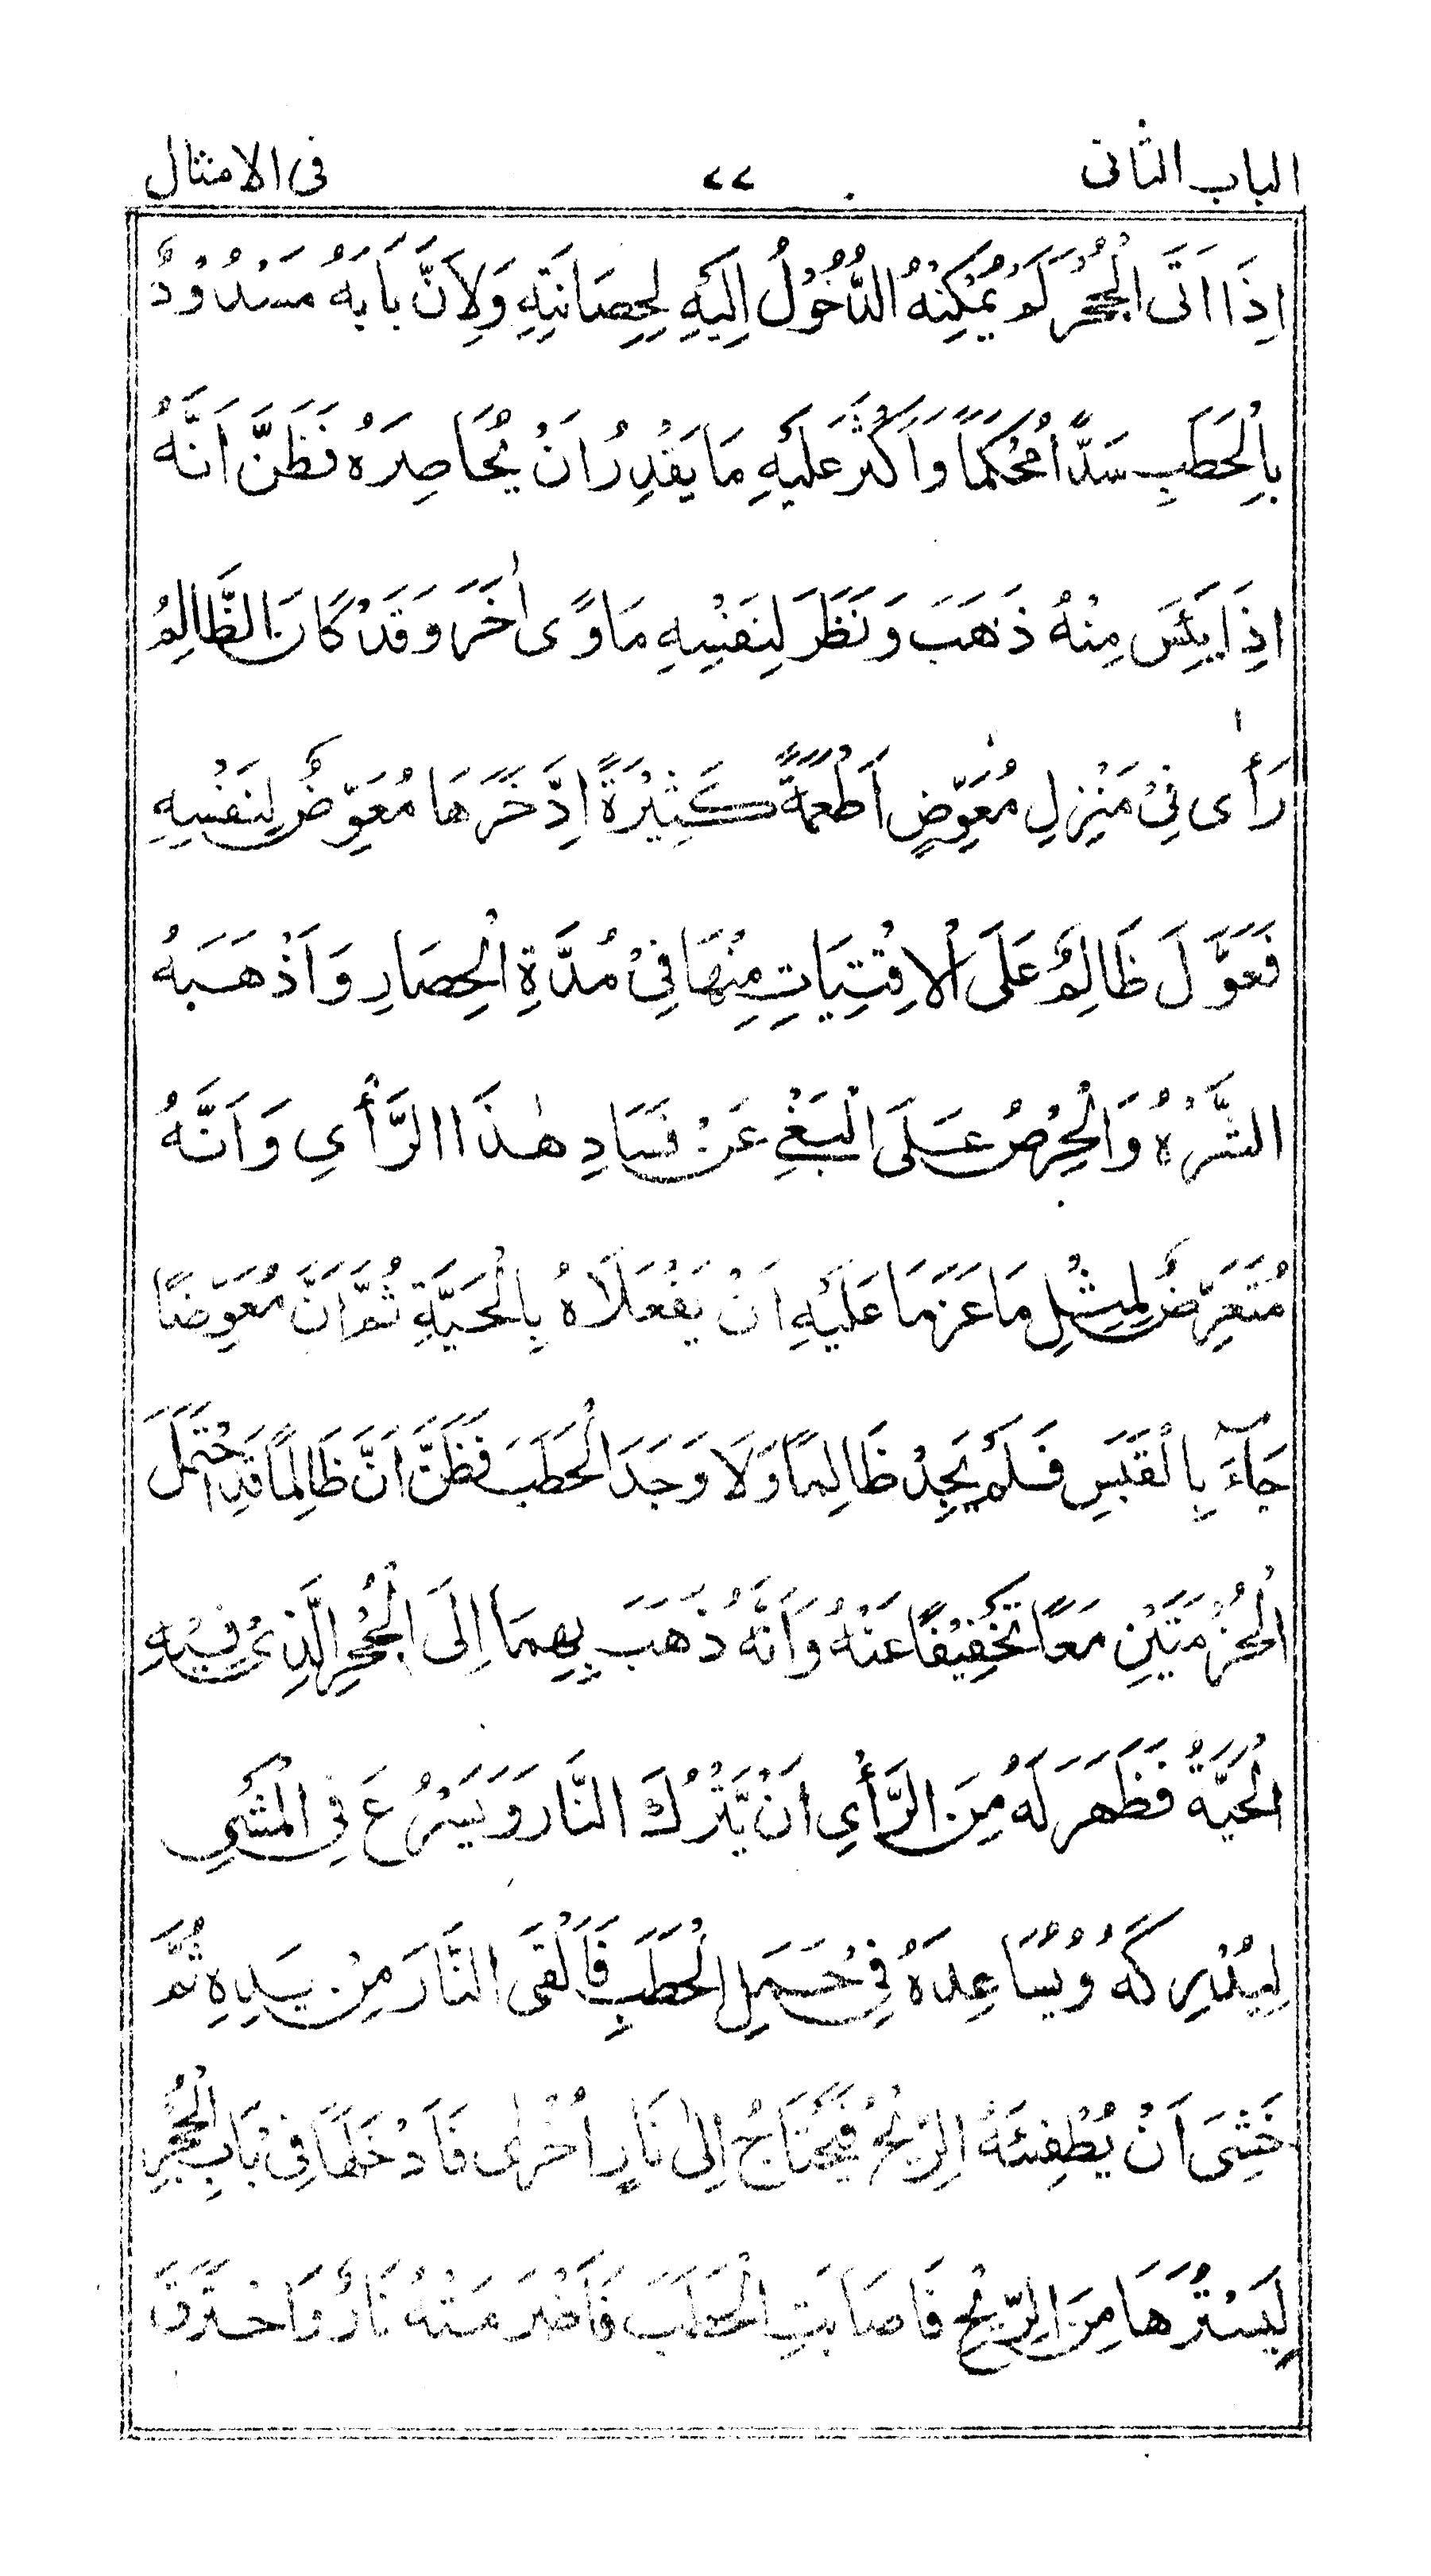 الباب الثانى ٢٢ فى الامثال
اِذَا اَتَى الْجُحْرَ لَمْ يُمْكِنْهُ الدُّخُوْلُ اِلَيْهِ لِحِصَانَتِهِ وَلِاَنَّ بَابَهُ مَسْدُوْدٌ
بِالْحَطَبِ سَدًّا مُحْكَمًا وَاَكْثَرَ عَلَيْهِ مَا يَقْدِرُ اَنْ يُحَاصِرَهُ فَظَنَّ اَنَّهُ
اِذَا يَئِسَ مِنْهُ ذَهَبَ وَنَظَرَ لِنَفْسِهِ مَاوًى اٰخَرَ وَقَدْ كَانَ الظَّالِمُ
رَأٰى فِيْ مَنْزِلِ مُعَوِّضٍ اَطْعِمَةً كَثِيْرَةً اِدَّخَرَهَا مُعَوِّضٌ لِنَفْسِهِ
فَعَوَّلَ ظَالِمٌ عَلَى الْاِقْتِيَاتِ مِنْهَا فِيْ مُدَّةِ الْحِصَارِ وَاَذْهَبَهُ
الشَّرْهُ وَالْحِرْصُ عَلَى الْبَغْيِ عَنْ فَسَادِ هٰذَا الرَّأْىِ وَاَنَّهُ
مُتَعَرِّضٌ لِمِثْلِ مَا عَزَمَا عَلَيْهِ اَنْ يَفْعَلَاهُ بِالْحَيَّةِ ثُمَّ اَنَّ مُعَوِّضًا
جَآءَ بِالْقَبَسِ فَلَمْ يَجِدْ ظَالِمًا وَلَا وَجَدَ الْحَطَبَ فَظَنَّ اَنَّ ظَالِمًا قَدِ احْتَمَلَ
الْحُزْمَتَيْنِ مَعًا تَخْفِيْفًا عَنْهُ وَاَنَّهُ ذَهَبَ بِهِمَا اِلَى الْجُحْرِ الَّذِىْ فِيْهِ
الْحَيَّةُ فَظَهَرَ لَهُ مِنَ الرَّأْىِ اَنْ يَّتْرُكَ النَّارَ وَيَسْرُعَ فِى الْمَشْىِ
لِيُدْرِكَهُ وَيُسَاعِدَهُ فِىْ حَمَلِ الْحَطَبِ فَاَلْقَى النَّارَ مِنْ يَدِهِ ثُمَّ
خَشِىَ اَنْ يُطْفِئَهُ الرِّيْحُ فَيَحْتَاجُ اِلٰى نَارٍ اُخْرٰى فَاَدْخَلَهَا فِىْ بَابِ الْجُحْرِ
لِيَسْتُرَهَا مِنَ الرِّيْحِ فَاصَابَتِ الْحَطَبَ فَاَضْرَمَتْهُ نَارًا وَاحْتَرَقَ